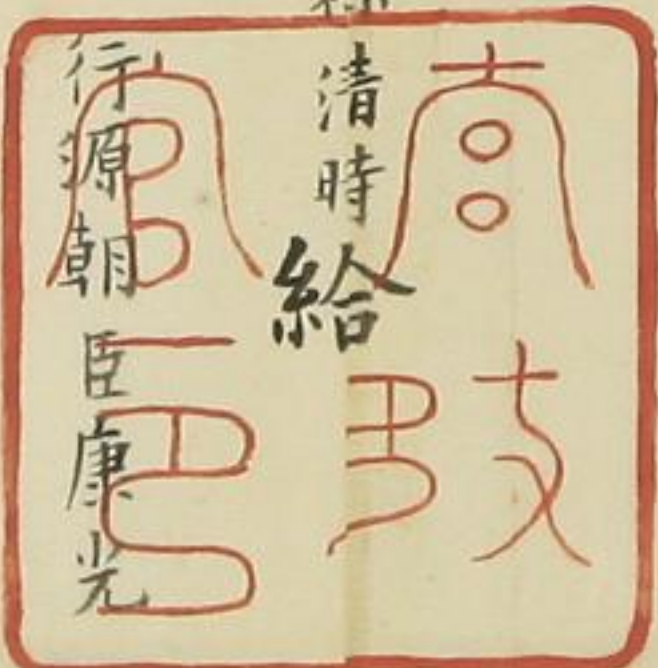 清時
給
行源朝臣康光
官印